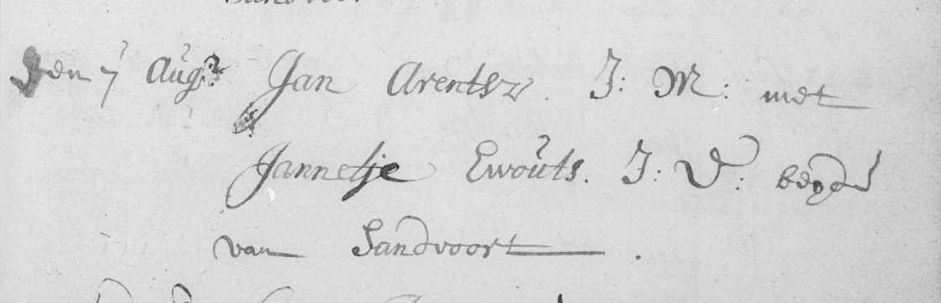 den 7 Aug: Jan Arentsz. J: M: met
Jannetje Ewoùts. J: D: beyde
van Sandvoort.